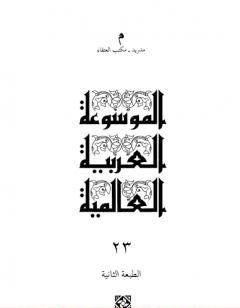 م
مدريد - مكتب العتقاء
الموسوعة
العربية
العالمية
٢٣
الطبعة الثانية